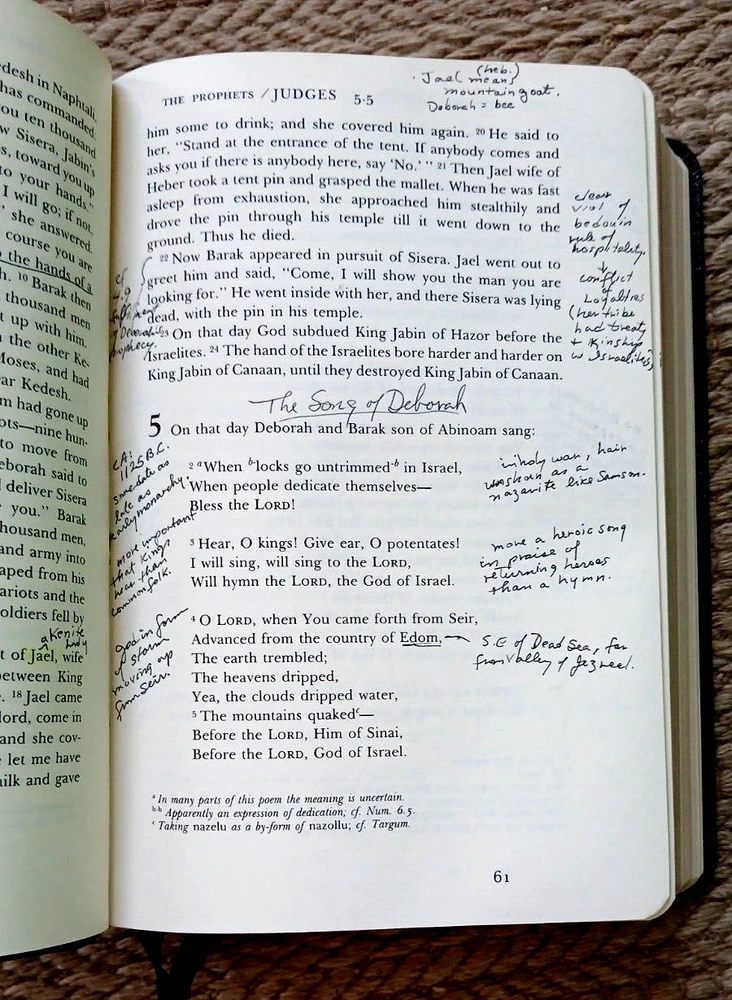 desh in Naphtali,
has commanded:
ou ten thousand
w Sisera, Jabin's
s, toward you up
to your hands."
I will go; if not,
" she answered.
course you are
the hands of a
h. 10 Barak then
thousand men
t up with him.
n the other Ke-
Moses, and had
ear Kedesh.
m had gone up
ots—nine hun-
to move from
eborah said to
l deliver Sisera
you." Barak
housand men,
and army into
aped from his
ariots and the
oldiers fell by
a Kenite lady
t of Jael, wife
between King
e. 18 Jael came
lord, come in
and she cov-
let me have
nilk and gave
THE PROPHETS / JUDGES 5.5
(heb.)
Jael means
mountain goat.
Deborah = bee
him some to drink; and she covered him again. 20 He said to
her, "Stand at the entrance of the tent. If anybody comes and
asks you if there is anybody here, say 'No.' " 21 Then Jael wife of
Heber took a tent pin and grasped the mallet. When he was fast
asleep from exhaustion, she approached him stealthily and
drove the pin through his temple till it went down to the
ground. Thus he died.
22 Now Barak appeared in pursuit of Sisera. Jael went out to
greet him and said, "Come, I will show you the man you are
looking for." He went inside with her, and there Sisera was lying
dead, with the pin in his temple.
23 On that day God subdued King Jabin of Hazor before the
Israelites. 24 The hand of the Israelites bore harder and harder on
King Jabin of Canaan, until they destroyed King Jabin of Canaan.
clear
viol of
bedouin
rule of
hospitality.
conflict
of
Loyalties
(her tribe
had treaty
+ kinship
w Israelites)
cf
4.9
Deborah's
prophecy.
The Song of Deborah
5 On that day Deborah and Barak son of Abinoam sang:
2 a When b-locks go untrimmed-b in Israel,
When people dedicate themselves—
Bless the LORD!
in holy war, hair
was as a
nazarite like Samson.
CA:
1125 B.C.
some date as
late as
early monarchy.
3 Hear, O kings! Give ear, O potentates!
I will sing, will sing to the LORD,
Will hymn the LORD, the God of Israel.
more a heroic song
in praise of
returning heroes
than a hymn.
more important
that kings
hear than
common folk.
4 O LORD, when You came forth from Seir,
Advanced from the country of Edom,
The earth trembled;
The heavens dripped,
Yea, the clouds dripped water,
5 The mountains quaked c—
Before the LORD, Him of Sinai,
Before the LORD, God of Israel.
S.E of Dead Sea, far
from Valley of Jezreel.
god in form
of storm
moving up
from Seir.
a In many parts of this poem the meaning is uncertain.
b-b Apparently an expression of dedication; cf. Num. 6.5.
c Taking nazelu as a by-form of nazollu; cf. Targum.
61